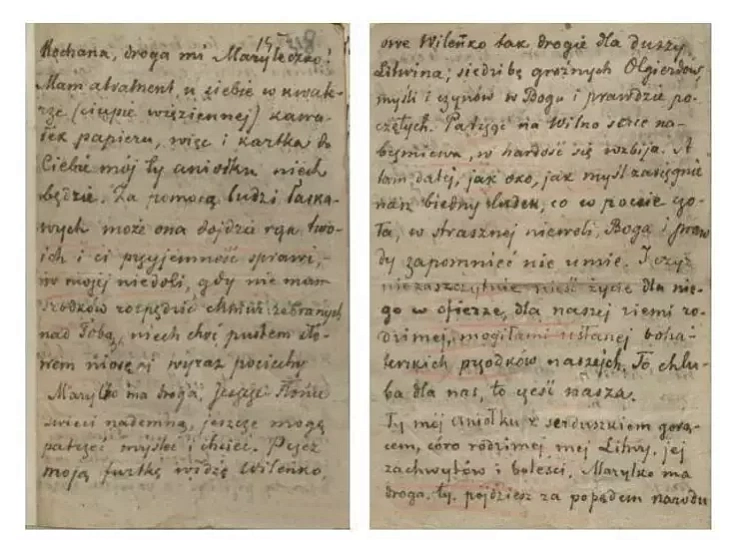 15 48
Kochana, droga mi Maryleczko!
Mam atrament, u ciebie w kwatе-
rze (ciupie więziennej) kawa-
łek papieru, więc i kartka do
Ciebie mój ty aniołku niech
będzie. Za pomocą ludzi łaska-
wych może ona dojdzie rąk two-
ich i ci przyjemność sprawi,
w mojej niedoli, gdy nie mam
środków rozpędzić chmur zebranych
nad Tobą, niech choć pustem sło-
wem niosę ci wyraz pociechy
Marylko ma droga, jeszcze słońce
świeci nademną, jeszcze mogę
patrzeć myśleć i chcieć. Przez
moją furtkę widzę Wileńko,
owe Wileńko tak drogie dla duszy
Litwina; siedzibę groźnych Olgierdów,
myśli i czynów w Bogu i prawdzie po-
czętych. Patrząc na Wilno serce na-
brzmiewa, w hardość się wzbija. A
tam dalej, jak oko, jak myśl zasięgnie
nasz biedny ludek, co w pocie czo-
ła, w strasznej niewoli, Boga i praw
dy zapomnieć nie umie. I czyż
niezaszczytnie nieść życie dla nie-
go w ofierze, dla naszej ziemi ro-
dzimej, mogiłami usłanej boha-
terskich przodków naszych. To chlu-
ba dla nas, to cześć nasza.
Ty mój aniołku z serduszkiem gorą-
cem, córo rodzimej mej Litwy, jej
zachwytów i boleści, Marylko ma
droga, ty, pójdziesz za popędem narodu